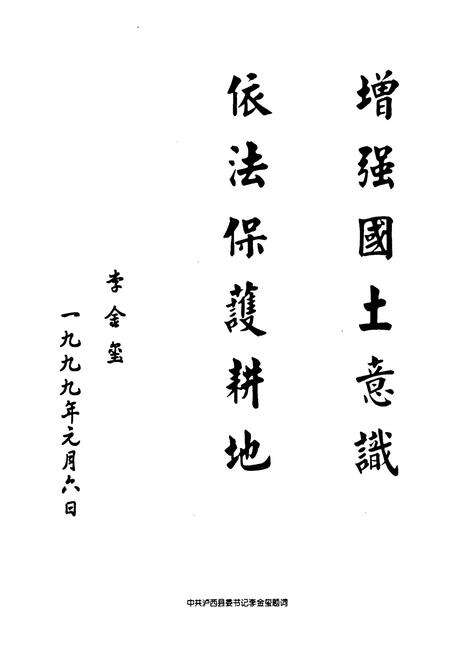 增强國土意識
依法保護耕地
李金玺
一九九九年元月六日
中共泸西县委书记李金玺题词